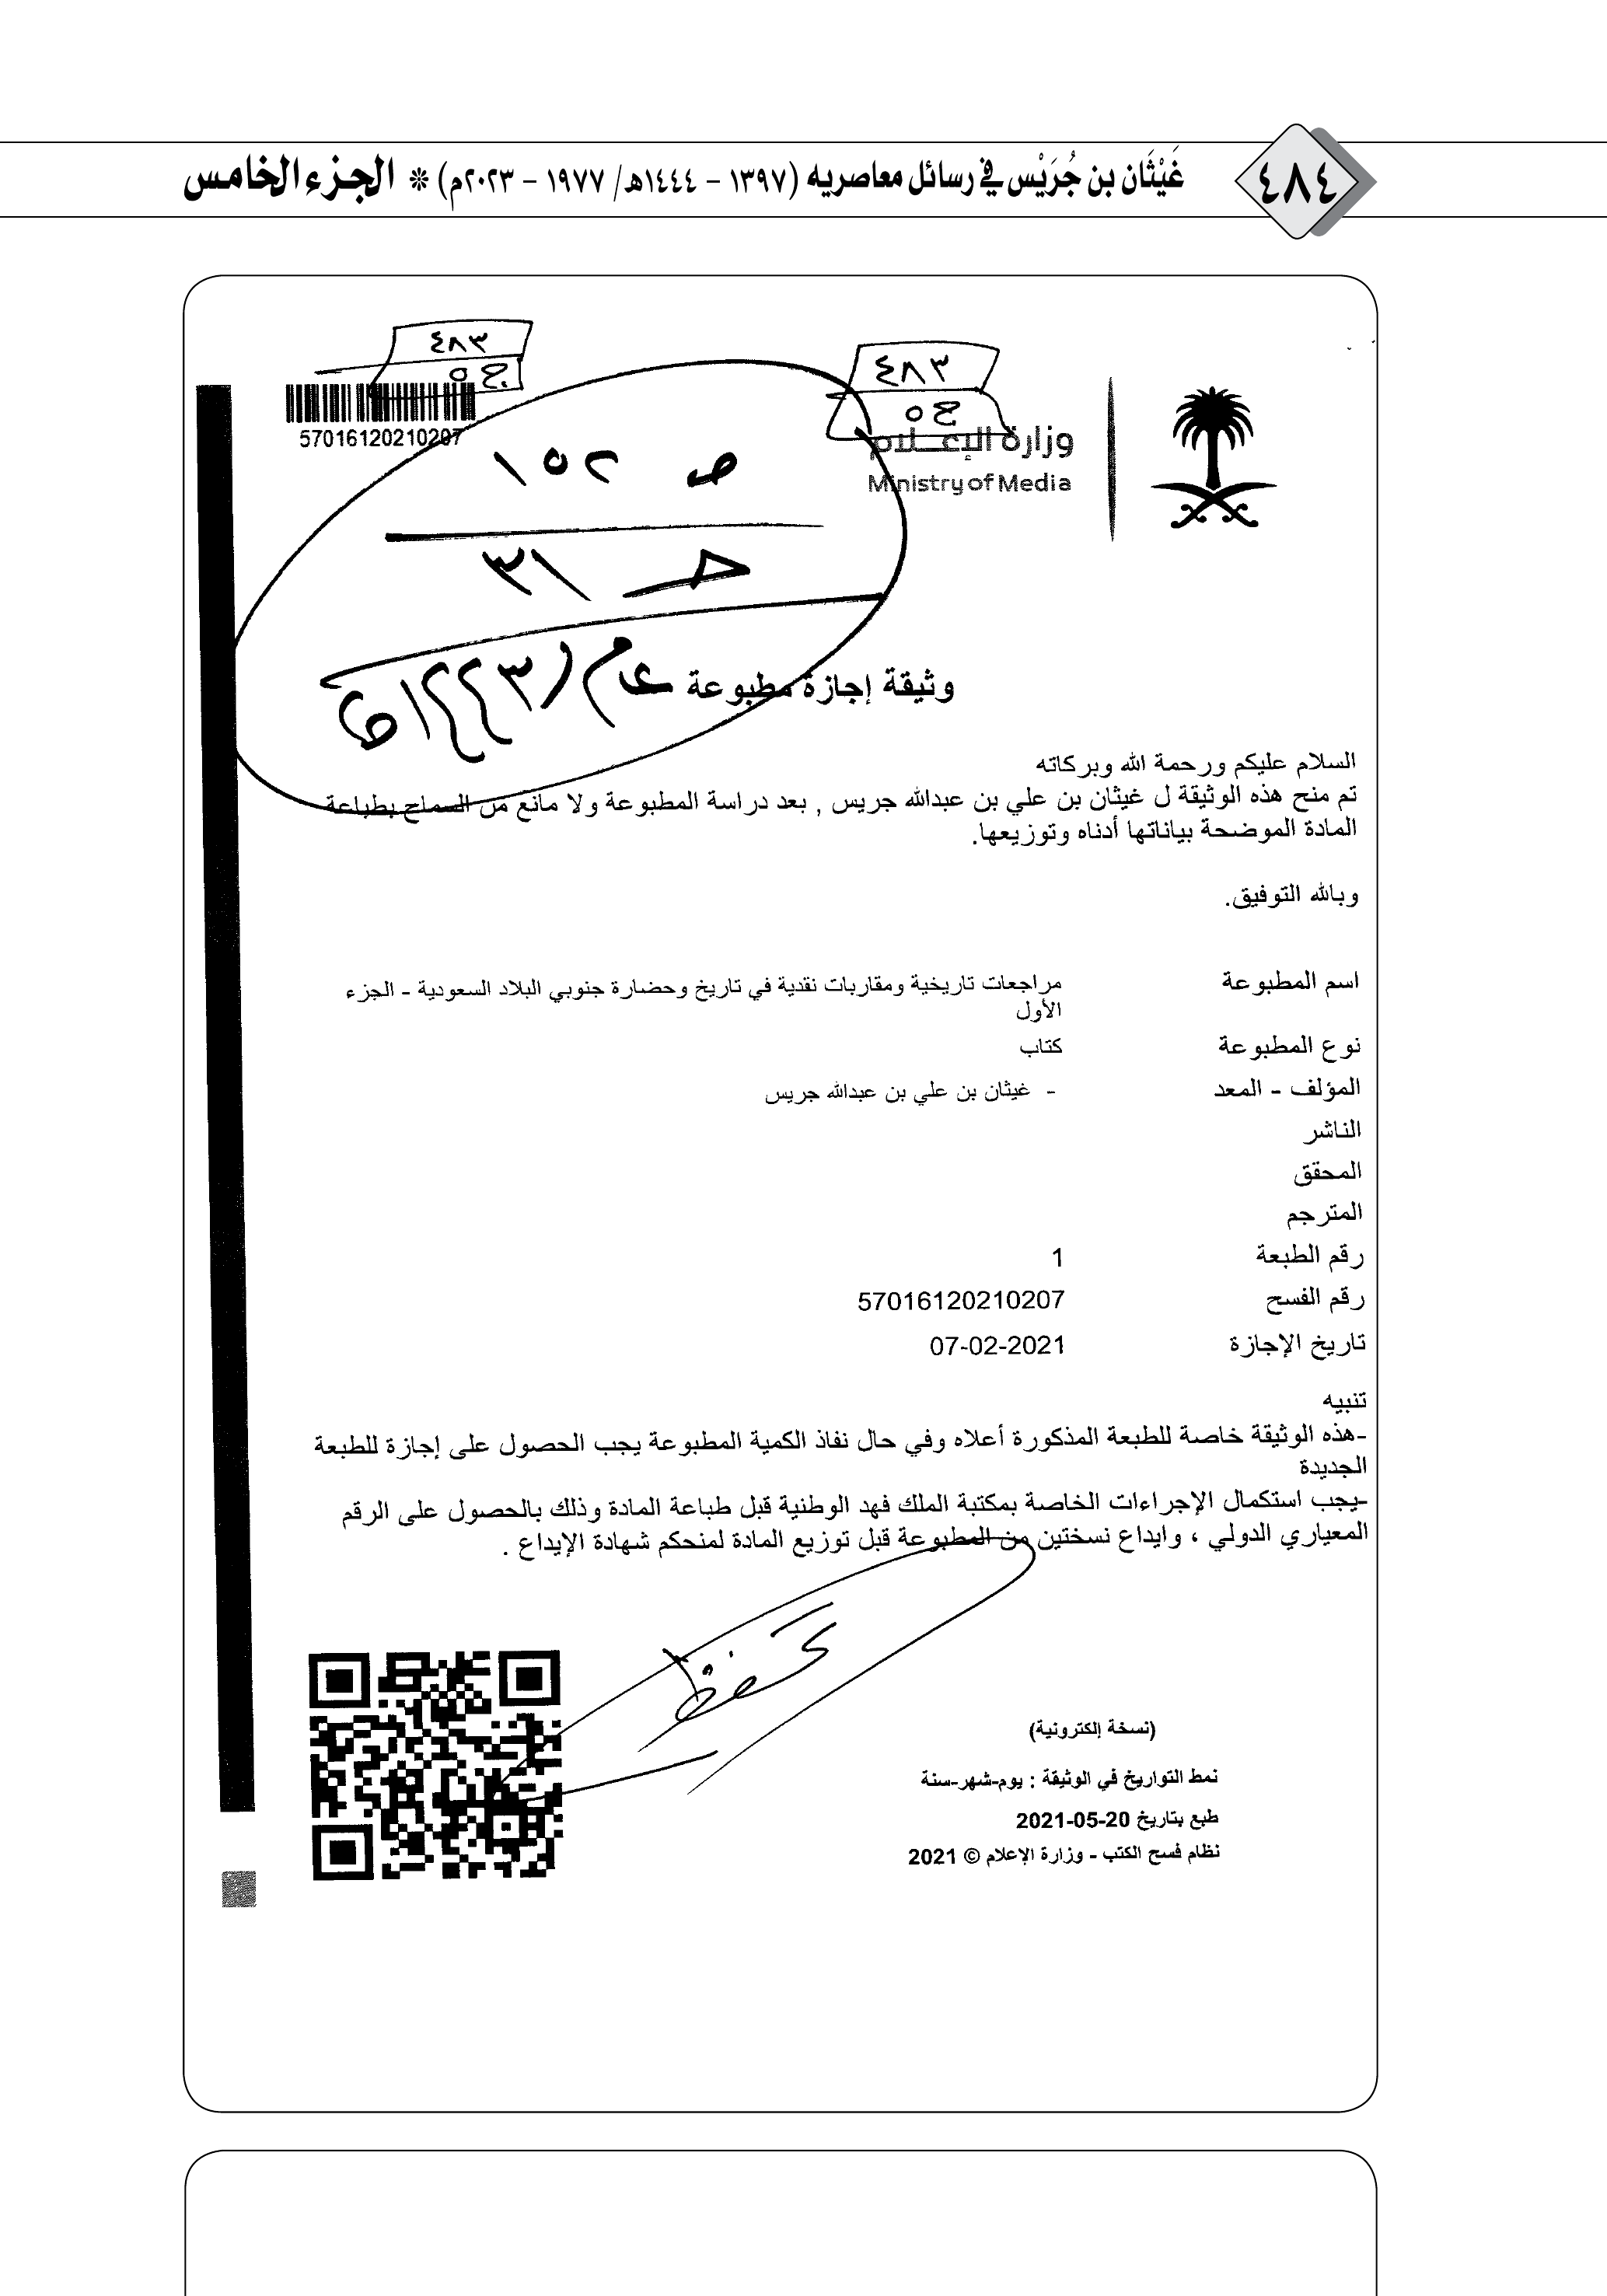 ٤٨٤
غَيْثَان بن جُرَيْس في رسائل معاصريه (١٣٩٧ - ١٤٤٤هـ/ ١٩٧٧ - ٢٠٢٣م) * الجزء الخامس
٤٨٣
ج ٥
٤٨٣
ج ٥
57016120210207
وزارة الإعلام
Ministry of Media
ص ١٥٢
هـ ٣١
وثيقة إجازة مطبوعة
السلام عليكم ورحمة الله وبركاته
تم منح هذه الوثيقة ل غيثان بن علي بن عبدالله جريس , بعد دراسة المطبوعة ولا مانع من السماح بطباعة
المادة الموضحة بياناتها أدناه وتوزيعها.
وبالله التوفيق.
اسم المطبوعة مراجعات تاريخية ومقاربات نقدية في تاريخ وحضارة جنوبي البلاد السعودية - الجزء
الأول
نوع المطبوعة كتاب
المؤلف - المعد - غيثان بن علي بن عبدالله جريس
الناشر
المحقق
المترجم
رقم الطبعة 1
رقم الفسح 57016120210207
تاريخ الإجازة 07-02-2021
تنبيه
-هذه الوثيقة خاصة للطبعة المذكورة أعلاه وفي حال نفاذ الكمية المطبوعة يجب الحصول على إجازة للطبعة
الجديدة
-يجب استكمال الإجراءات الخاصة بمكتبة الملك فهد الوطنية قبل طباعة المادة وذلك بالحصول على الرقم
المعياري الدولي ، وايداع نسختين من المطبوعة قبل توزيع المادة لمنحكم شهادة الإيداع .
تحفظ
(نسخة إلكترونية)
نمط التواريخ في الوثيقة : يوم-شهر-سنة
طبع بتاريخ 20-05-2021
نظام فسح الكتب - وزارة الإعلام © 2021